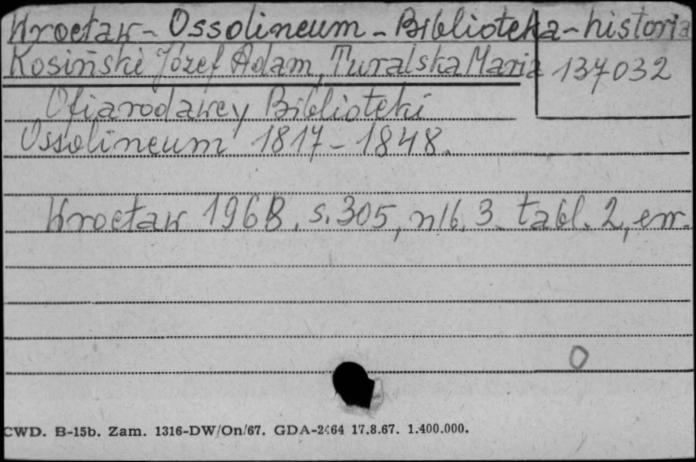 Wrocław - Ossolineum - Biblioteka - historia
Kosiński Józef Adam, Turalska Maria 137032
Ofiarodawcy Biblioteki
Ossolineum 1817-1848.
Wrocław 1968. s. 305, nlb. 3 tabl. 2, err.
O
CWD. B-15b. Zam. 1316-DW/On/67. GDA-2464 17.8.67. 1.400.000.